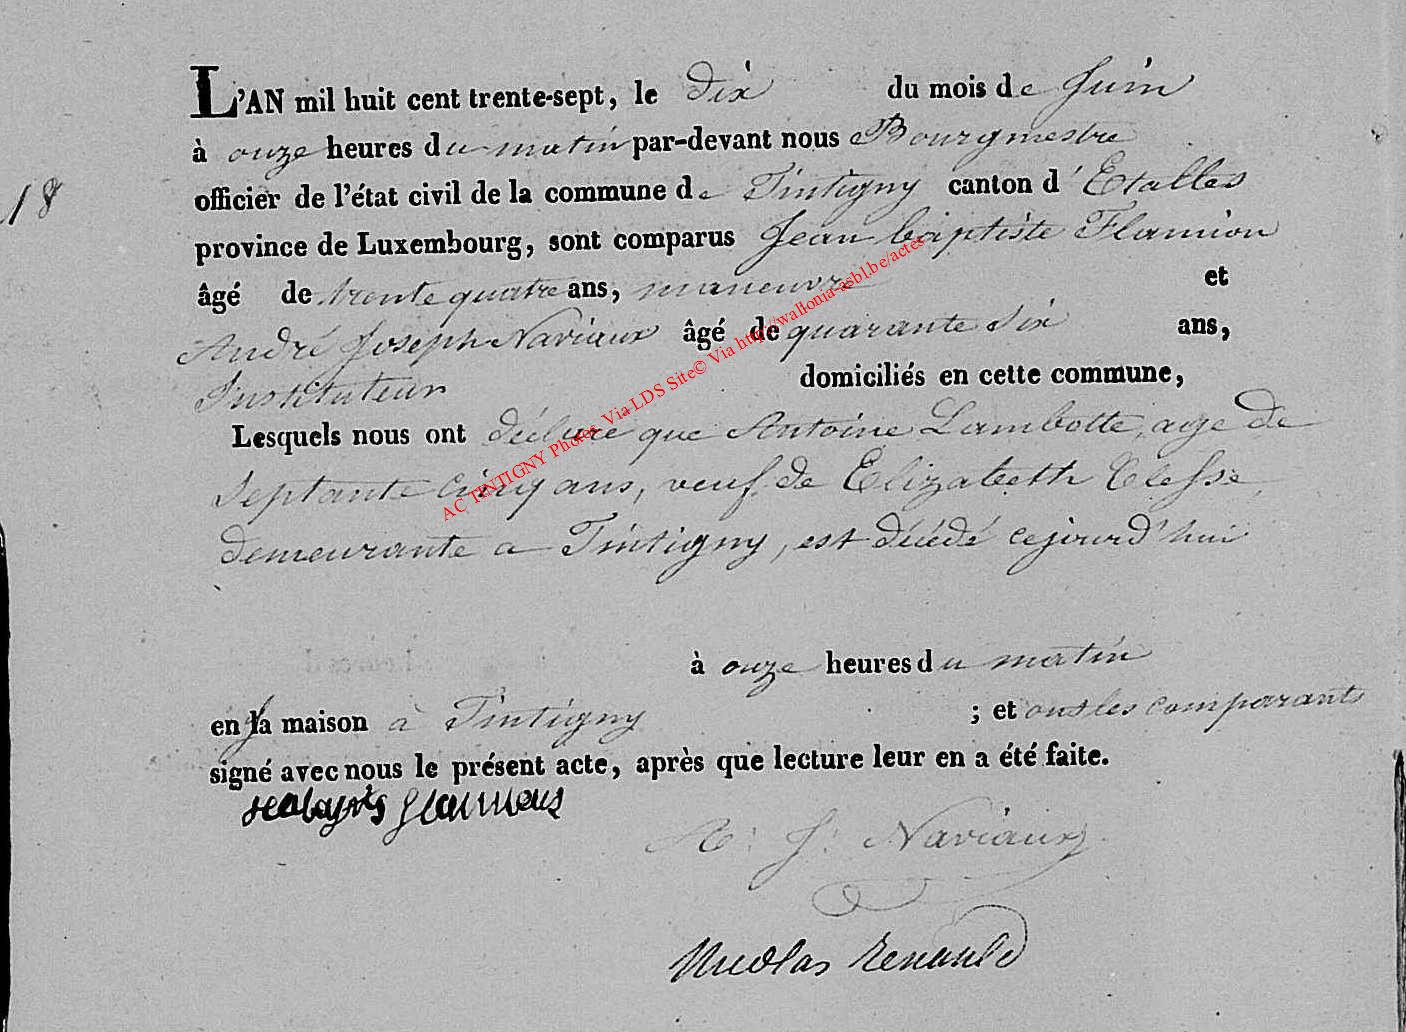 L'AN mil huit cent trente-sept, le dix du mois de Juin
à onze heures du matin par-devant nous Bourgmestre
18
officier de l'état civil de la commune de Tintigny canton d'Etalles
province de Luxembourg, sont comparus Jean baptiste Flamion
âgé de trente quatre ans, maneuvre et
André Joseph Naviaux âgé de quarante dix ans,
Instituteur domiciliés en cette commune,
Lesquels nous ont déclaré que Antoine Lambotte, age de
Septante Cinq ans, veuf de Elizabeth Clesse,
demeurante a Tintigny, est décédé cejourd'hui
à onze heures du matin
en la maison à Tintigny ; et ont les comparants
signé avec nous le présent acte, après que lecture leur en a été faite.
A: J: Naviaux
Nicolas Renauld
AC TINTIGNY Photos Via LDS Site© Via http://wallonia-asbl.be/actes